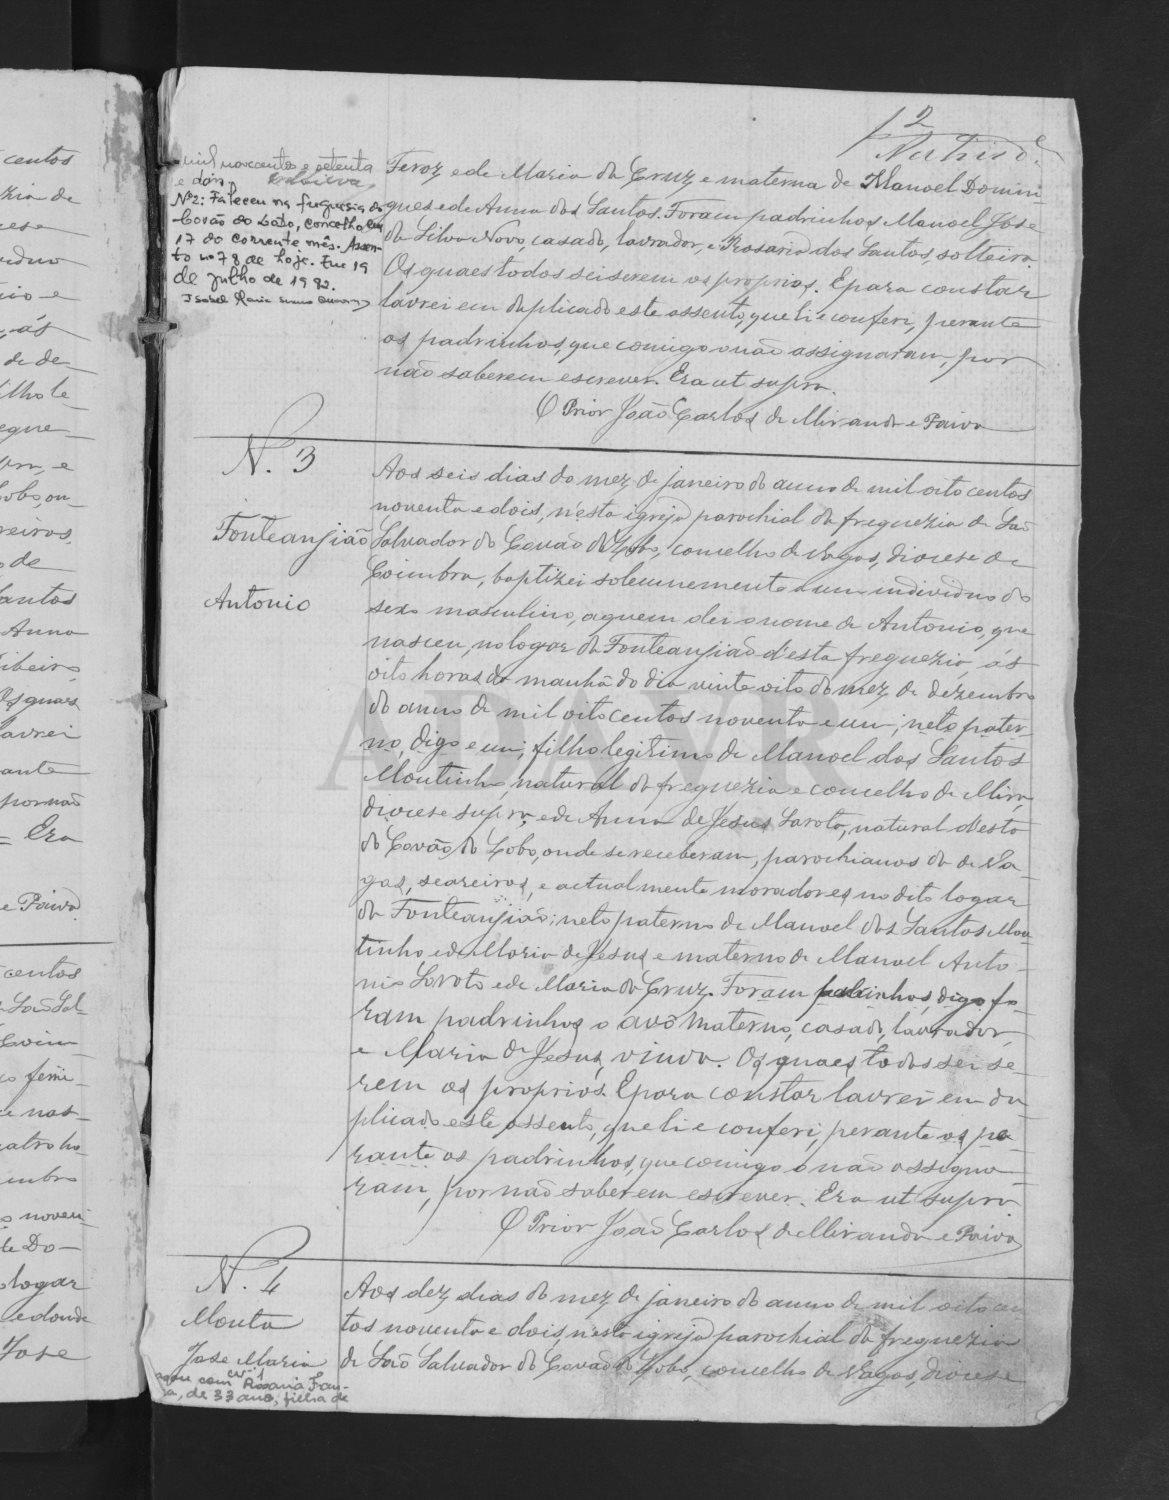 2
mil novecentos e setenta
e dois.
Nº2: Faleceu na freguesia do
Covão do Lobo, concelho em
17 do corrente mês. Assen-
to nº 78 de hoje. Em 19
de Julho de 1982.
Feroz, e de Maria da Cruz, e materna de Manoel Domin-
gues e de Anna dos Santos. Foram padrinhos Manoel José
da Silva Novo, casado, lavrador, e Rosaria dos Santos, solteira.
Os quaes todos sei serem os proprios. E para constar
lavrei em duplicado este assento, que li e conferi, perante
os padrinhos, que comigo o não assignaram, por
não saberem escrever. Era ut supra.
O Prior João Carlos de Miranda e Paiva
N. 3
Fonteanjião
Antonio
Aos seis dias do mez de janeiro do anno de mil oito centos
noventa e dois, n'esta igreja parochial da freguezia de São
Salvador do Covão do Lobo, concelho de Vagos, diocese de
Coimbra, baptizei solemnemente a um individuo do
sexo masculino, a quem dei o nome de Antonio, que
nasceu, no logar da Fonteanjião d'esta freguezia, ás
oito horas da manhã do dia vinte oito do mez de dezembro
do anno de mil oito centos noventa e um; neto pater-
no, digo e um, filho legitimo de Manoel dos Santos
Moutinho, natural da freguezia e concelho de Mira
diocese supra, e de Anna de Jesus Larota, natural d'esta
do Covão do Lobo, onde se receberam, parochianos da de Va-
gos, seareiros, e actualmente moradores no dito logar
da Fonteanjião; neto paterno de Manoel dos Santos Mou-
tinho e de Maria de Jesus e materno de Manoel Anto-
nio Laroto e de Maria da Cruz. Foram padrinhos, digo fo-
ram padrinhos o avô materno, casado, lavrador,
e Maria de Jesus, viuva. Os quaes todos sei se-
rem os proprios. E para constar lavrei em du-
plicado este assento, que li e conferi, perante os pa-
rante os padrinhos, que comigo o não assigna-
ram, por não saberem escrever. Era ut supra.
O Prior João Carlos de Miranda e Paiva
N. 4
Mouta
Jose Maria
com Rosaria
de 33 anos, filha de
Aos dez dias do mez de janeiro do anno de mil oito cen
tos noventa e dois, n'esta igreja parochial da freguezia
de São Salvador do Covão do Lobo, concelho de Vagos, diocese